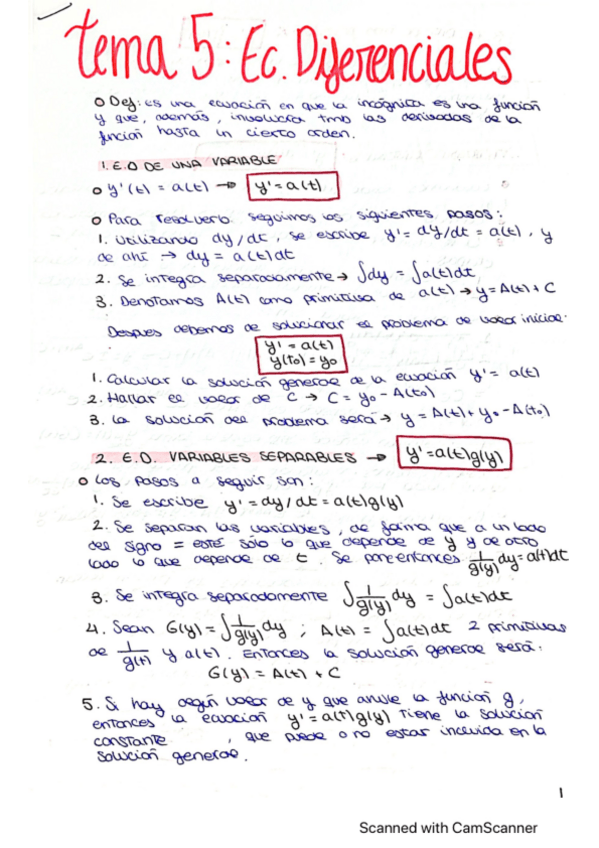 tema 5: Ec. Diferenciales
o Def: es una ecuación en que la incógnita es una función
y que, además, involucra tmb las derivadas de la
función hasta un cierto orden.
1. E.O DE UNA VARIABLE
o y'(t) = a(t) → y' = a(t)
o Para resolverlo seguimos los siguientes pasos:
1. Utilizando dy/dt, se escribe y' = dy/dt = a(t), y
de ahí → dy = a(t)dt
2. Se integra separadamente → ∫dy = ∫a(t)dt
3. Denotamos A(t) como primitiva de a(t) → y = A(t) + C
Despues debemos de solucionar el problema de valor inicial.
y' = a(t)
y(t₀) = y₀
1. Calcular la solución general de la ecuación y' = a(t)
2. Hallar el valor de C → C = y₀ - A(t₀)
3. La solución del problema será → y = A(t) + y₀ - A(t₀)
2. E.D. VARIABLES SEPARABLES → y' = a(t)g(y)
o Los pasos a seguir son:
1. Se escribe y' = dy/dt = a(t)g(y)
2. Se separan las variables, de forma que a un lado
del signo = esté sólo lo que depende de y y de otro
lado lo que depende de t. Se pone entonces 1/g(y) dy = a(t)dt
3. Se integra separadamente ∫ 1/g(y) dy = ∫a(t)dt
4. Sean G(y) = ∫ 1/g(y) dy ; A(t) = ∫a(t)dt 2 primitivas
de 1/g(t) y a(t). Entonces la solución general será:
G(y) = A(t) + C
5. Si hay algún valor de y que anule la función g,
entonces la ecuación y' = a(t)g(y) tiene la solución
constante , que puede o no estar incluida en la
solución general.
1
Scanned with CamScanner